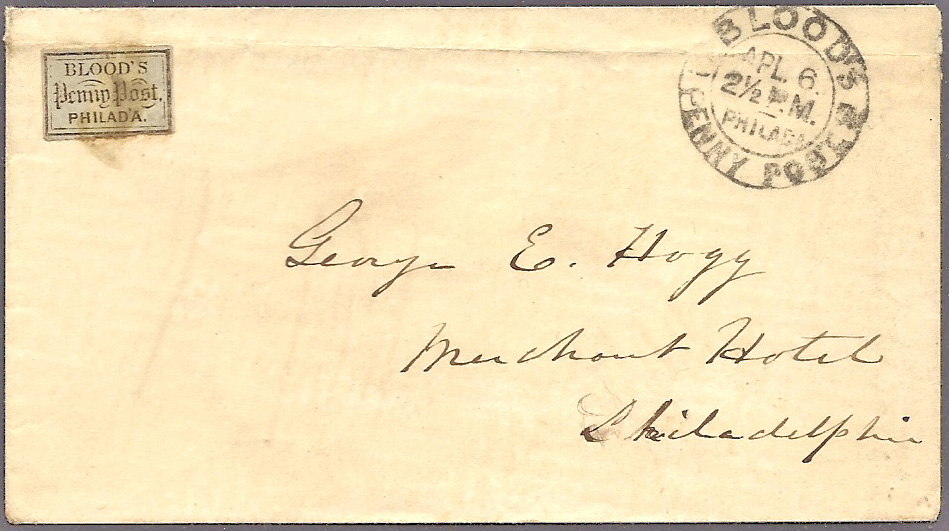 BLOOD'S
Penny Post,
PHILAD'A.
BLOOD'S
PENNY POST
APL. 6.
2½ P.M.
PHILADA
George E. Hogg
Merchant Hotel
Philadelphia